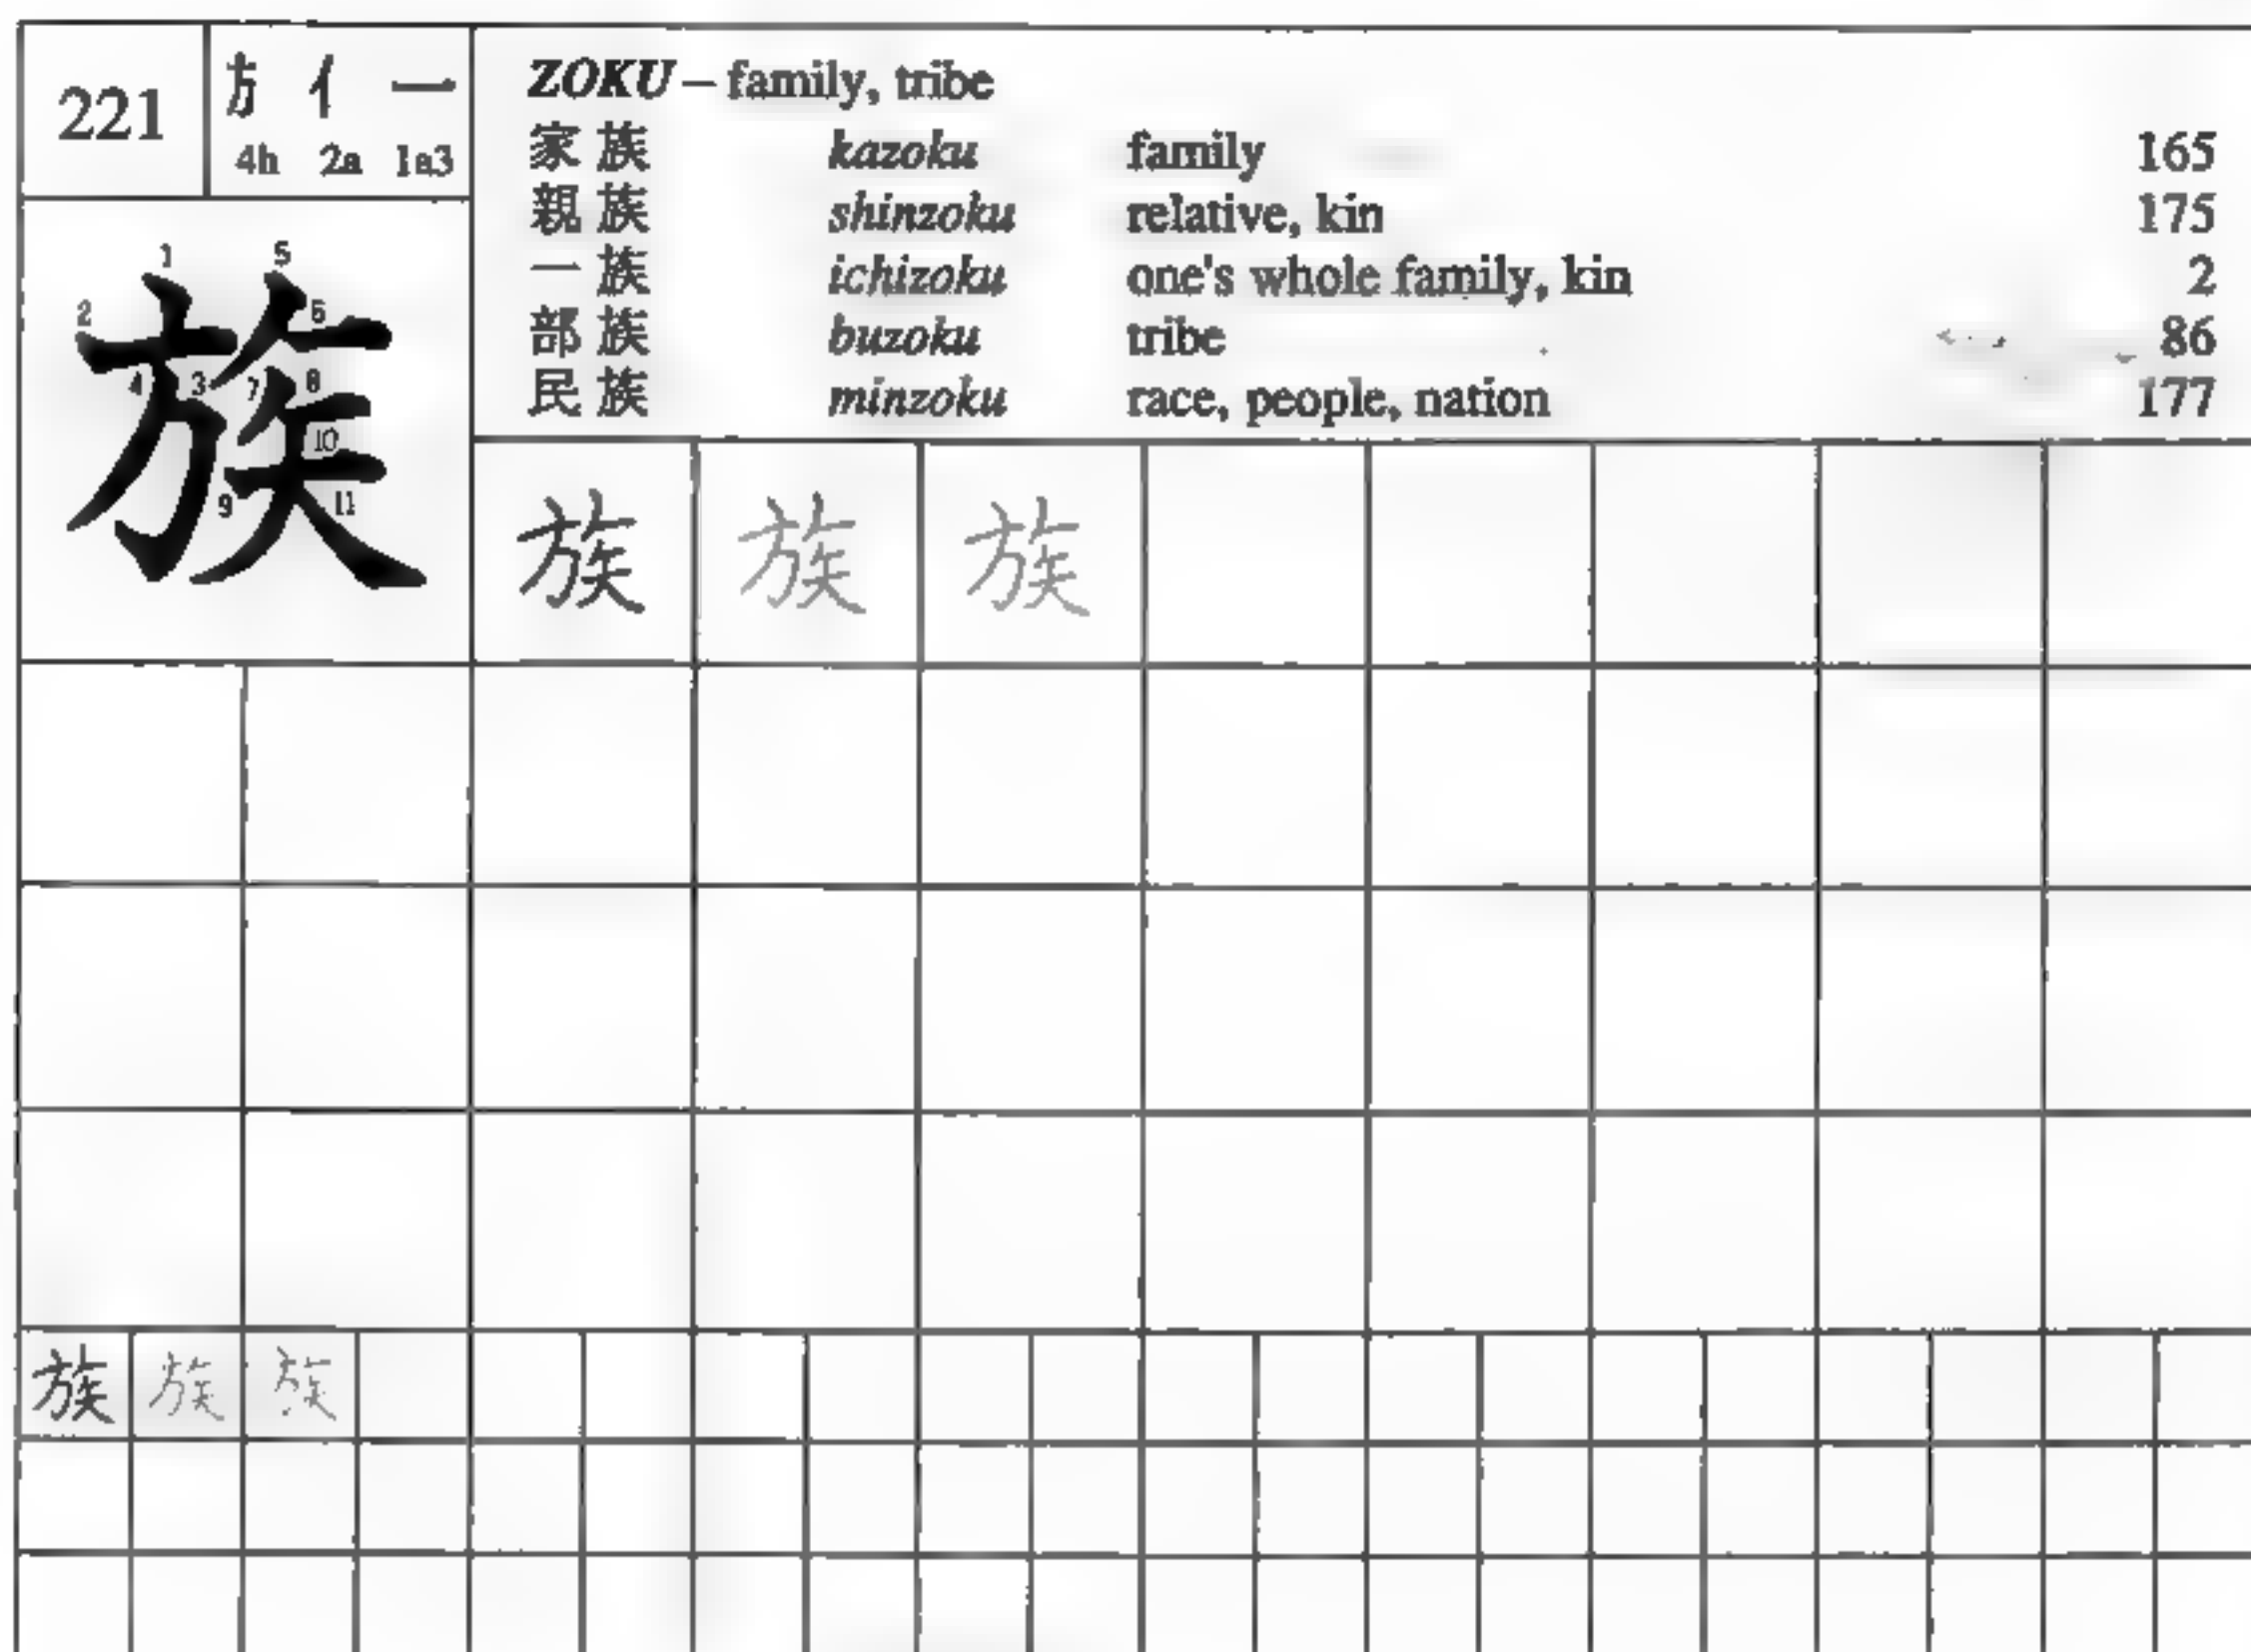 221
方 亻 一
4h 2a 1a3
ZOKU – family, tribe
家族 kazoku family 165
親族 shinzoku relative, kin 175
一族 ichizoku one's whole family, kin 2
部族 buzoku tribe 86
民族 minzoku race, people, nation 177
族
1 2 3 4 5 6 7 8 9 10 11
族 族 族
族 族 族